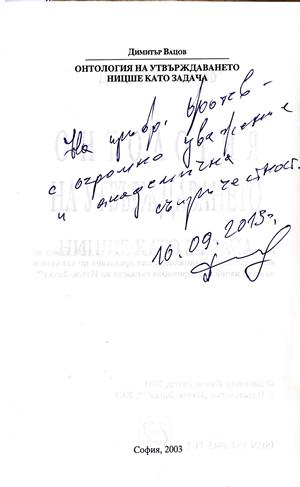 Димитър Вацов
ОНТОЛОГИЯ НА УТВЪРЖДАВАНЕТО
НИЦШЕ КАТО ЗАДАЧА
На проф.
с огромно уважение
и академична
съпричастност.
10.09.2013г.
София, 2003